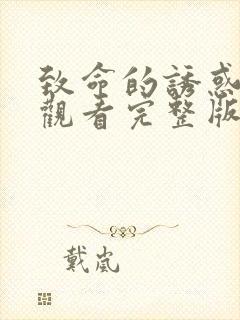 致命的誘惑
觀看完整版
戴嵐